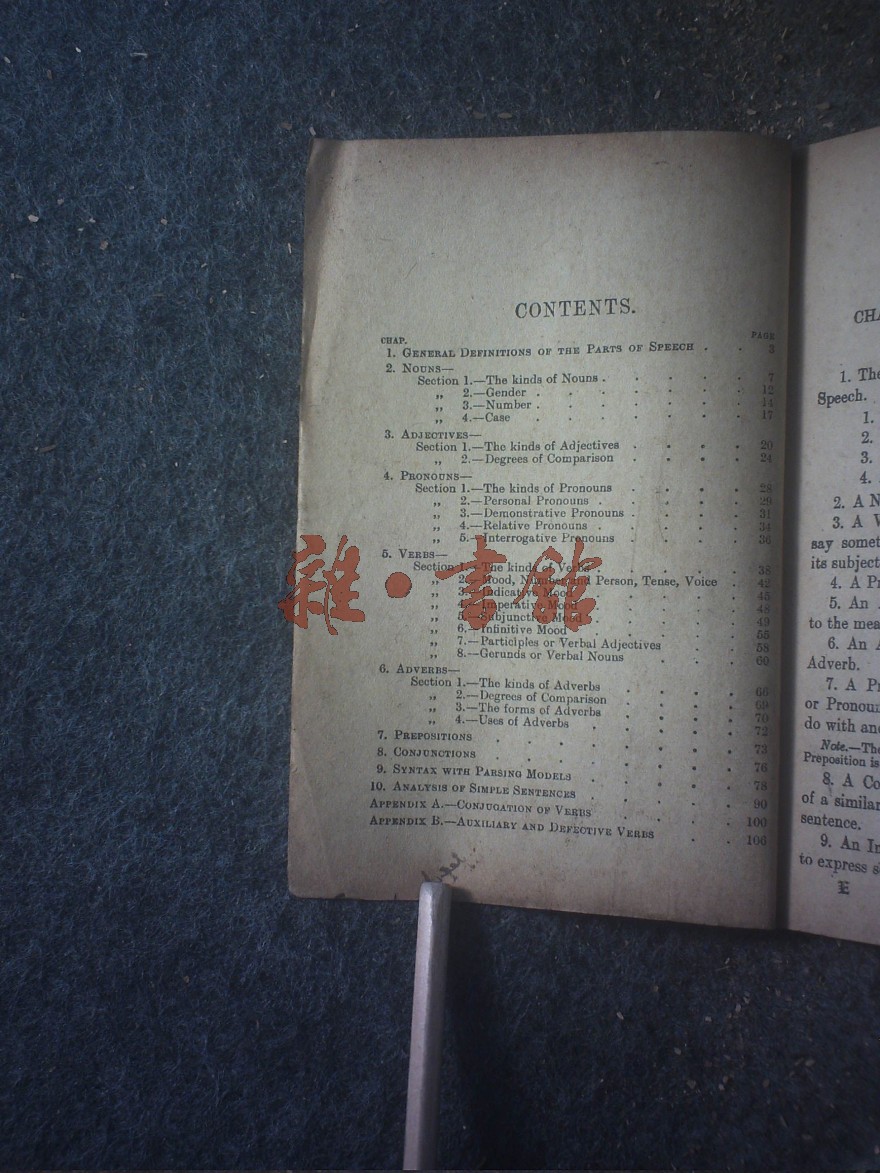 CONTENTS.
CHAP. PAGE
1. GENERAL DEFINITIONS OF THE PARTS OF SPEECH . . 3
2. NOUNS—
Section 1.—The kinds of Nouns . . . . . 7
„ 2.—Gender . . . . . . . 12
„ 3.—Number . . . . . . . 14
„ 4.—Case . . . . . . . 17
3. ADJECTIVES—
Section 1.—The kinds of Adjectives . . . . 20
„ 2.—Degrees of Comparison . . . . 24
4. PRONOUNS—
Section 1.—The kinds of Pronouns . . . . 28
„ 2.—Personal Pronouns . . . . . 29
„ 3.—Demonstrative Pronouns . . . . 31
„ 4.—Relative Pronouns . . . . . 34
„ 5.—Interrogative Pronouns . . . . 36
5. VERBS—
Section 1.—The kinds of Verbs . . . . . 38
„ 2.—Mood, Number and Person, Tense, Voice . 42
„ 3.—Indicative Mood . . . . . 45
„ 4.—Imperative Mood . . . . . 48
„ 5.—Subjunctive Mood . . . . . 49
„ 6.—Infinitive Mood . . . . . 55
„ 7.—Participles or Verbal Adjectives . . . 58
„ 8.—Gerunds or Verbal Nouns . . . . 60
6. ADVERBS—
Section 1.—The kinds of Adverbs . . . . 66
„ 2.—Degrees of Comparison . . . . 69
„ 3.—The forms of Adverbs . . . . 70
„ 4.—Uses of Adverbs . . . . . 72
7. PREPOSITIONS . . . . . . . . 73
8. CONJUNCTIONS . . . . . . . . 76
9. SYNTAX WITH PARSING MODELS . . . . . 78
10. ANALYSIS OF SIMPLE SENTENCES . . . . . 90
APPENDIX A.—CONJUGATION OF VERBS . . . . 100
APPENDIX B.—AUXILIARY AND DEFECTIVE VERBS . . 106
雜·書館
1. The
Speech.
1.
2.
3.
4.
2. A N
3. A V
say somet
its subject
4. A Pr
5. An
to the mea
6. An A
Adverb.
7. A Pr
or Pronoun
do with ano
Note.—The
Preposition is
8. A Co
of a similar
sentence.
9. An In
to express s
E